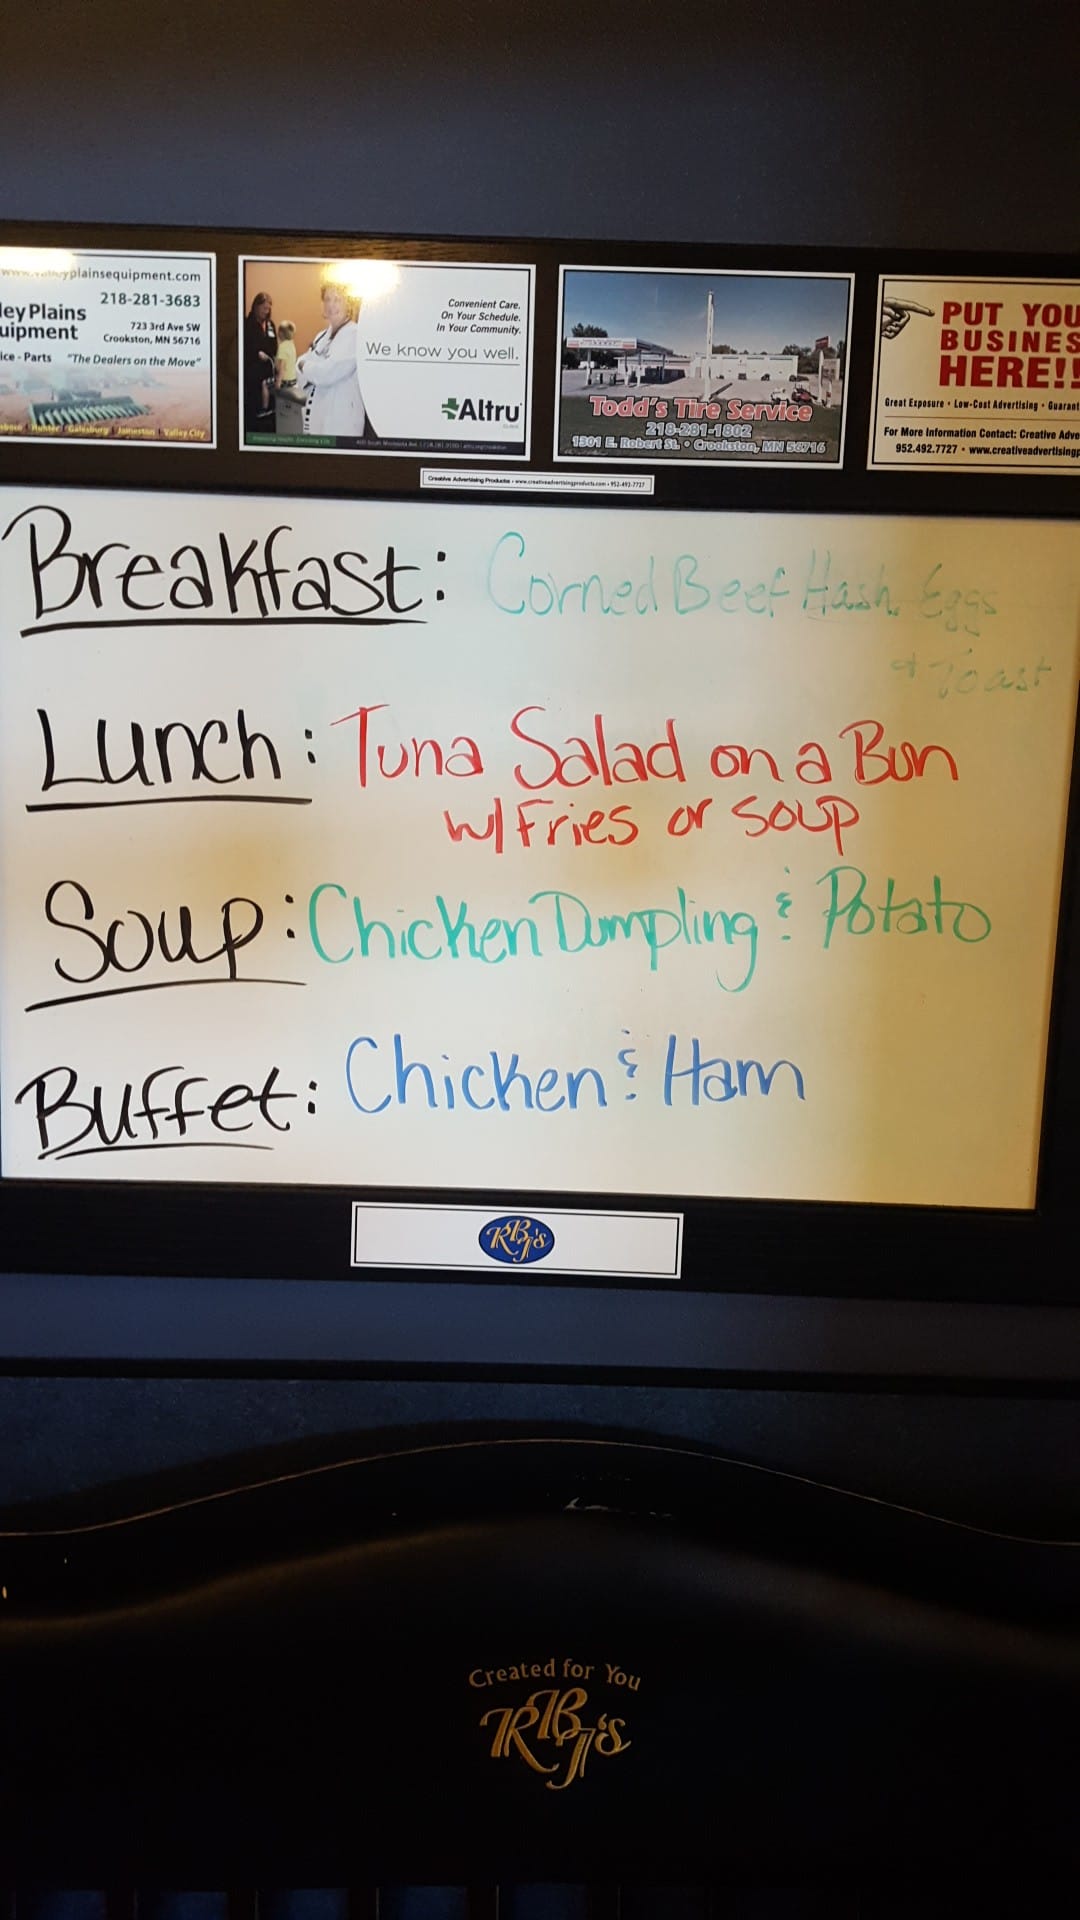 www.valleyplainsequipment.com
218-281-3683
ley Plains
uipment
723 3rd Ave SW
Crookston, MN 56716
ice - Parts "The Dealers on the Move"
Hunter | Galesburg | Jamestown | Valley City
Convenient Care.
On Your Schedule.
In Your Community.
We know you well.
Altru
Todd's Tire Service
218-281-1802
1301 E. Robert St. • Crookston, MN 56716
PUT YOU
BUSINES
HERE!!
Great Exposure • Low-Cost Advertising • Guarant
For More Information Contact: Creative Adve
952.492.7727 • www.creativeadvertisingp
Creative Advertising Products • www.creativeadvertisingproducts.com • 952-492-7727
Breakfast: Corned Beef Hash, Eggs
& Toast
Lunch: Tuna Salad on a Bun
w/ Fries or soup
Soup: Chicken Dumpling & Potato
Buffet: Chicken & Ham
RBJ's
Created for You
RBJ's